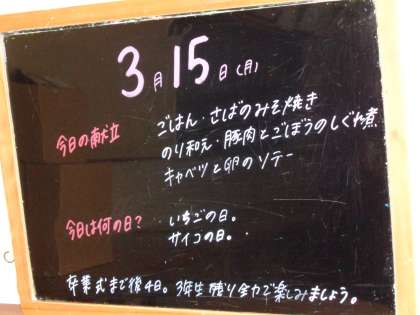 3月15日(月)
今日の献立
ごはん・さばのみそ焼き
のり和え・豚肉とごぼうのしぐれ煮
キャベツと卵のソテー
今日は何の日?
いちごの日。
サイコの日。
卒業式まで後4日。3年生残り全力で楽しみましょう。